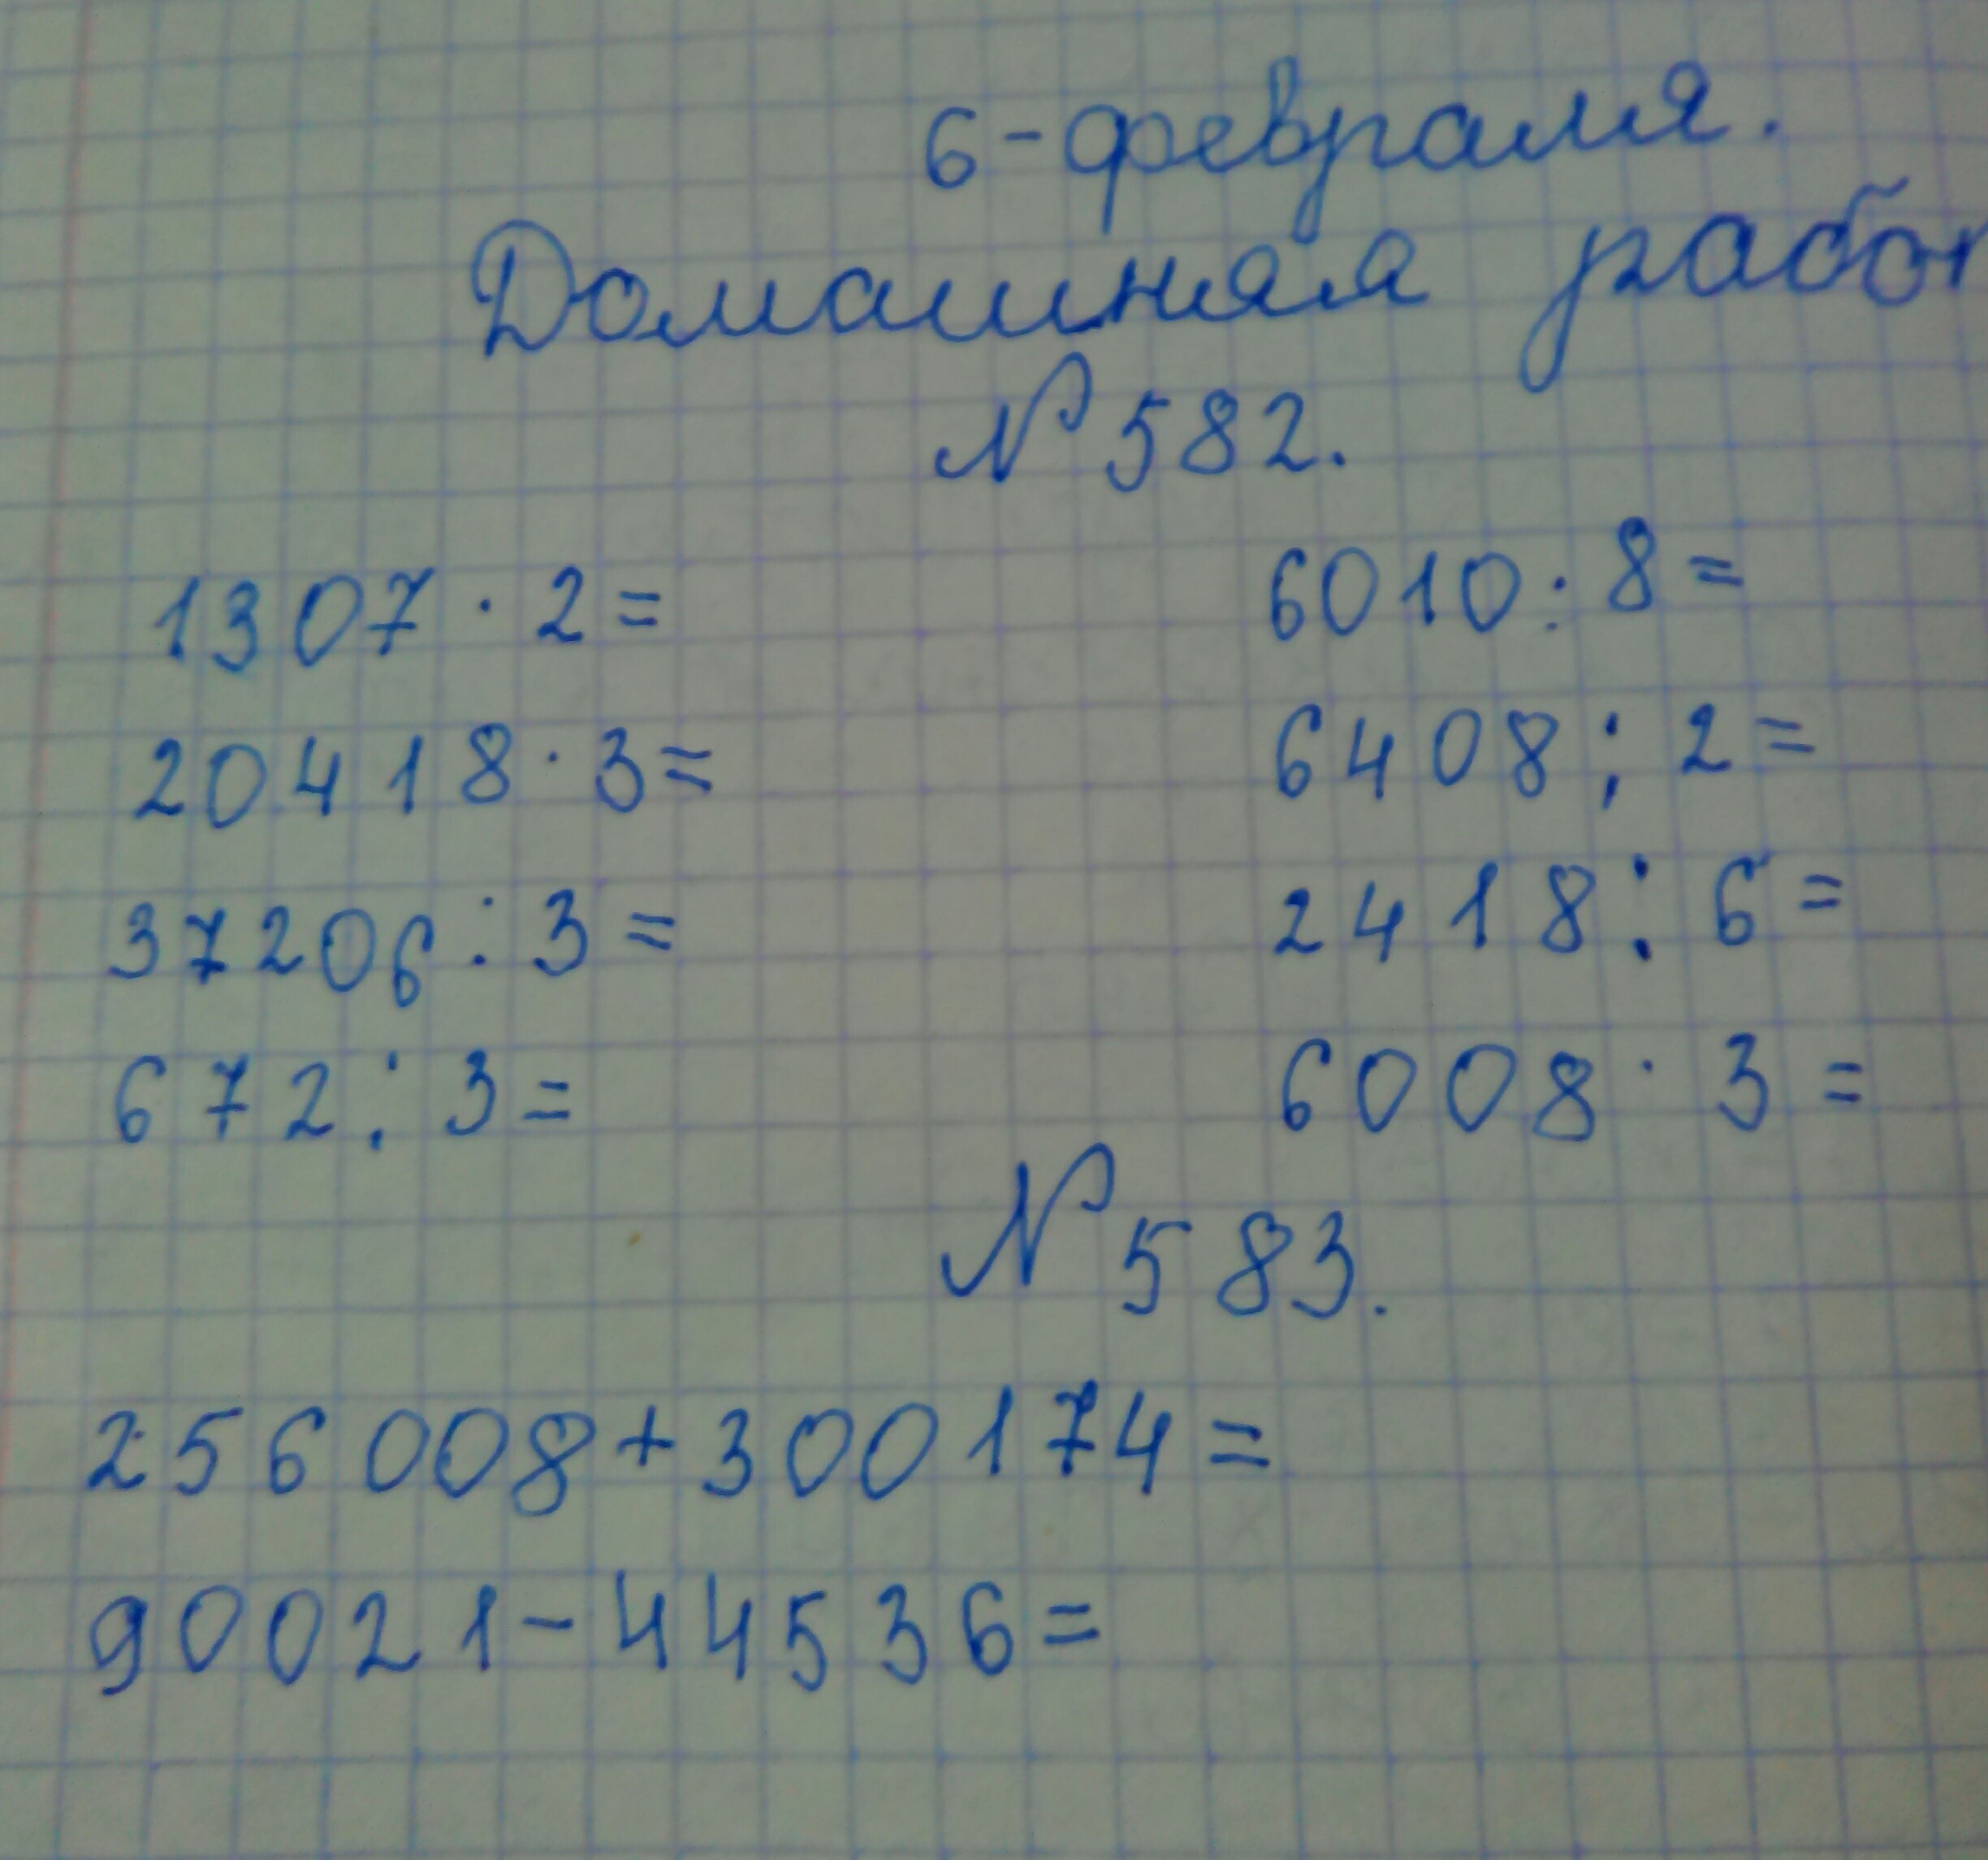 6-февраля.
Домашняя работ
№ 582.
1307 · 2 =
6010 : 8 =
20418 · 3 =
6408 : 2 =
37206 : 3 =
2418 : 6 =
672 : 3 =
6008 · 3 =
№ 583.
256008 + 300174 =
90021 - 44536 =